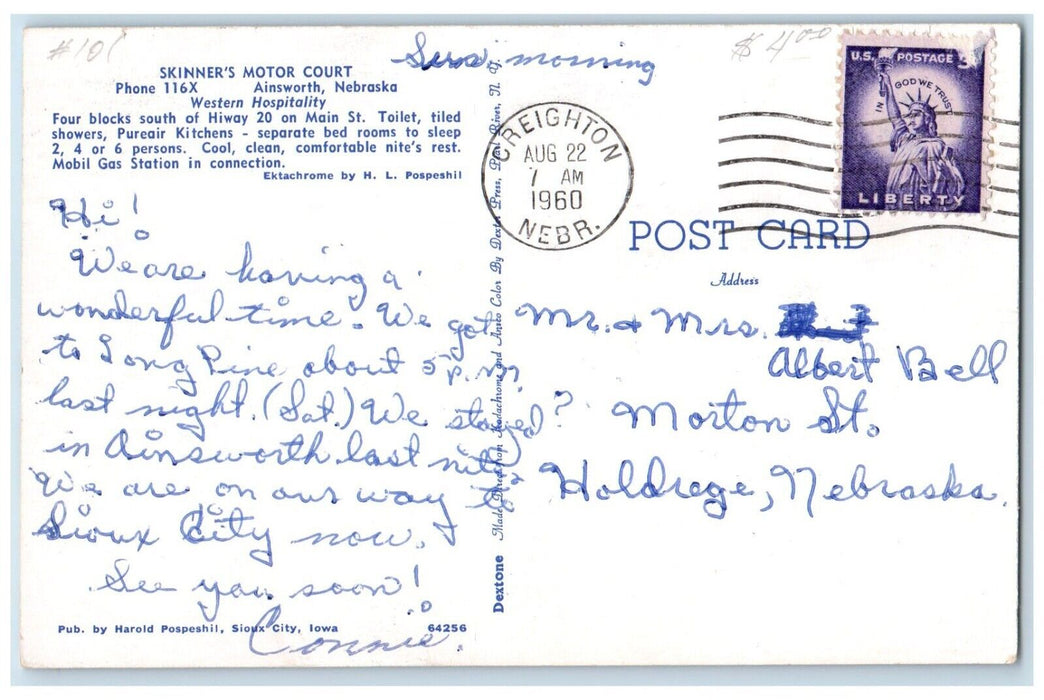 #101
Sun. morning
$4.00
SKINNER'S MOTOR COURT
Phone 116X Ainsworth, Nebraska
Western Hospitality
Four blocks south of Hiway 20 on Main St. Toilet, tiled
showers, Pureair Kitchens - separate bed rooms to sleep
2, 4 or 6 persons. Cool, clean, comfortable nite's rest.
Mobil Gas Station in connection.
Ektachrome by H. L. Pospeshil
Hi!
We are having a
wonderful time. We got
to Long Pine about 5 p.m.
last night. (Sat.) We stayed
in Ainsworth last nite.
We are on our way to
Sioux City now.
See you soon!
Connie.
Pub. by Harold Pospeshil, Sioux City, Iowa 64256
Dextone Made Direct from Kodachrome and Ansco Color By Dexter Press, Pearl River, N. Y.
CREIGHTON
AUG 22
7 AM
1960
NEBR.
U.S. POSTAGE
IN GOD WE TRUST
LIBERTY
POST CARD
Address
Mr. & Mrs.
Albert Bell
? Morton St.
Holdrege, Nebraska.